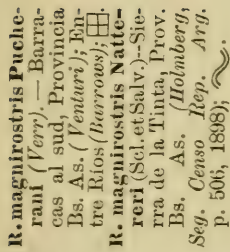 R. magnirostris Puche-
rani (Verr). — Barra-
cas al sud, Provincia
Bs. As. (Venturi); En-
tre Ríos (Barrows);
R. magnirostris Natte-
reri (Scl. et Salv.)--Sie-
rra de la Tinta, Prov.
Bs. As. (Holmberg,
Seg. Censo Rep. Arg.
p. 506, 1898);